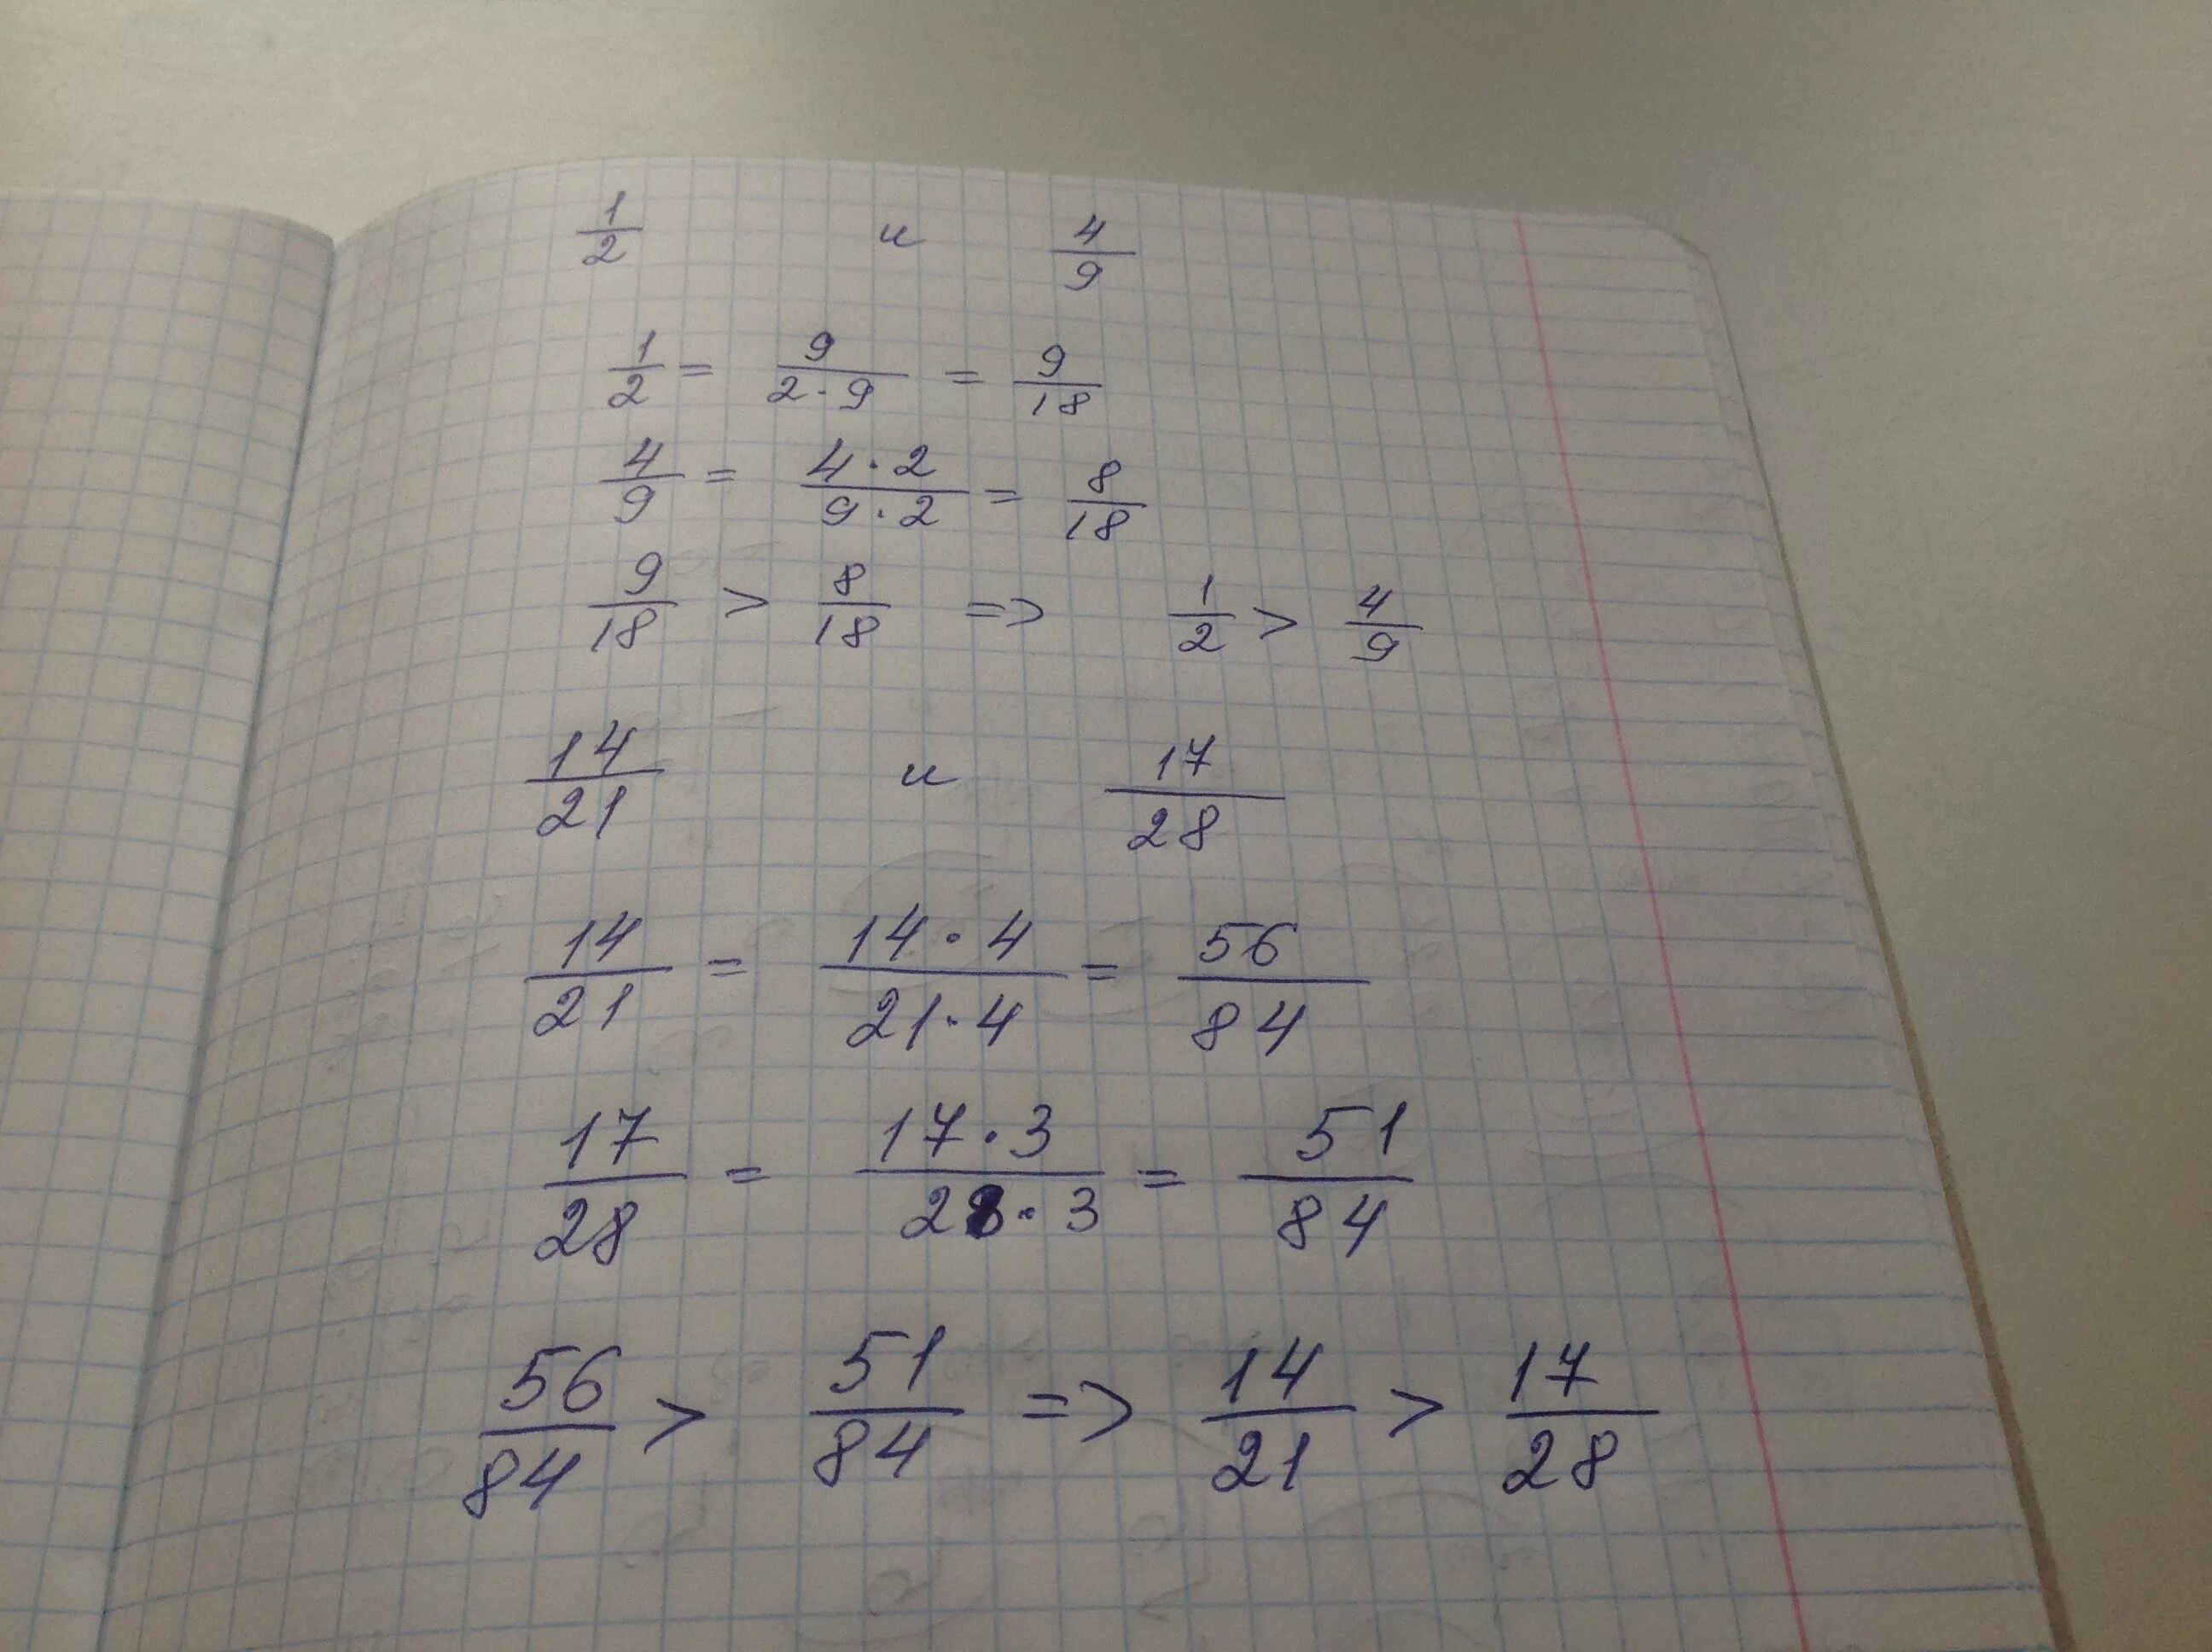 1/2 и 4/9
1/2 = 9/(2·9) = 9/18
4/9 = (4·2)/(9·2) = 8/18
9/18 > 8/18 => 1/2 > 4/9
14/21 и 17/28
14/21 = (14·4)/(21·4) = 56/84
17/28 = (17·3)/(28·3) = 51/84
56/84 > 51/84 => 14/21 > 17/28